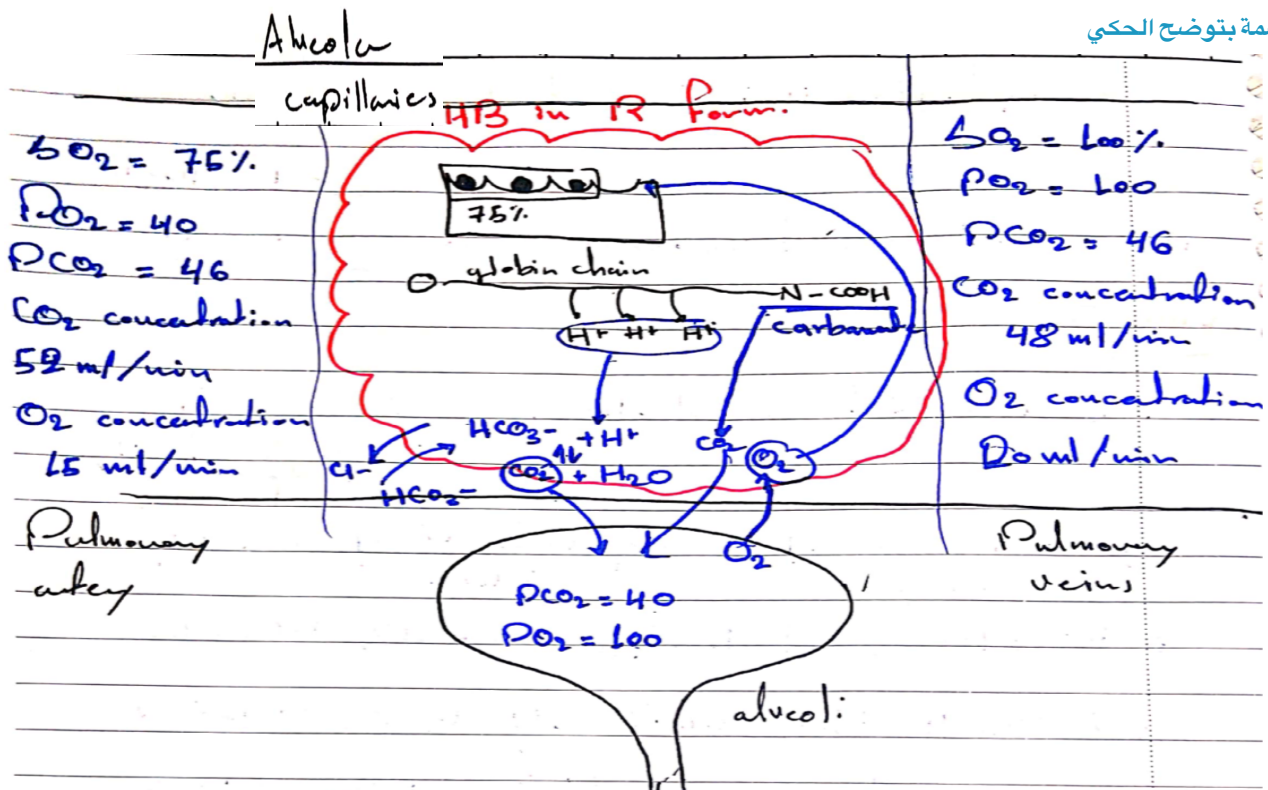 مة بتوضح الحكي
Alveolar
capillaries
HB in R form.
SO2 = 75%
PO2 = 40
PCO2 = 46
CO2 concentration
52 ml/min
O2 concentration
15 ml/min
Pulmonary
artery
75%
globin chain
N-COOH
carbamate
H+ H+ H+
HCO3- + H+
CO2 + H2O
Cl-
HCO3-
CO2
O2
O2
PCO2 = 40
PO2 = 100
alveoli
SO2 = 100%
PO2 = 100
PCO2 = 46
CO2 concentration
48 ml/min
O2 concentration
20 ml/min
Pulmonary
veins